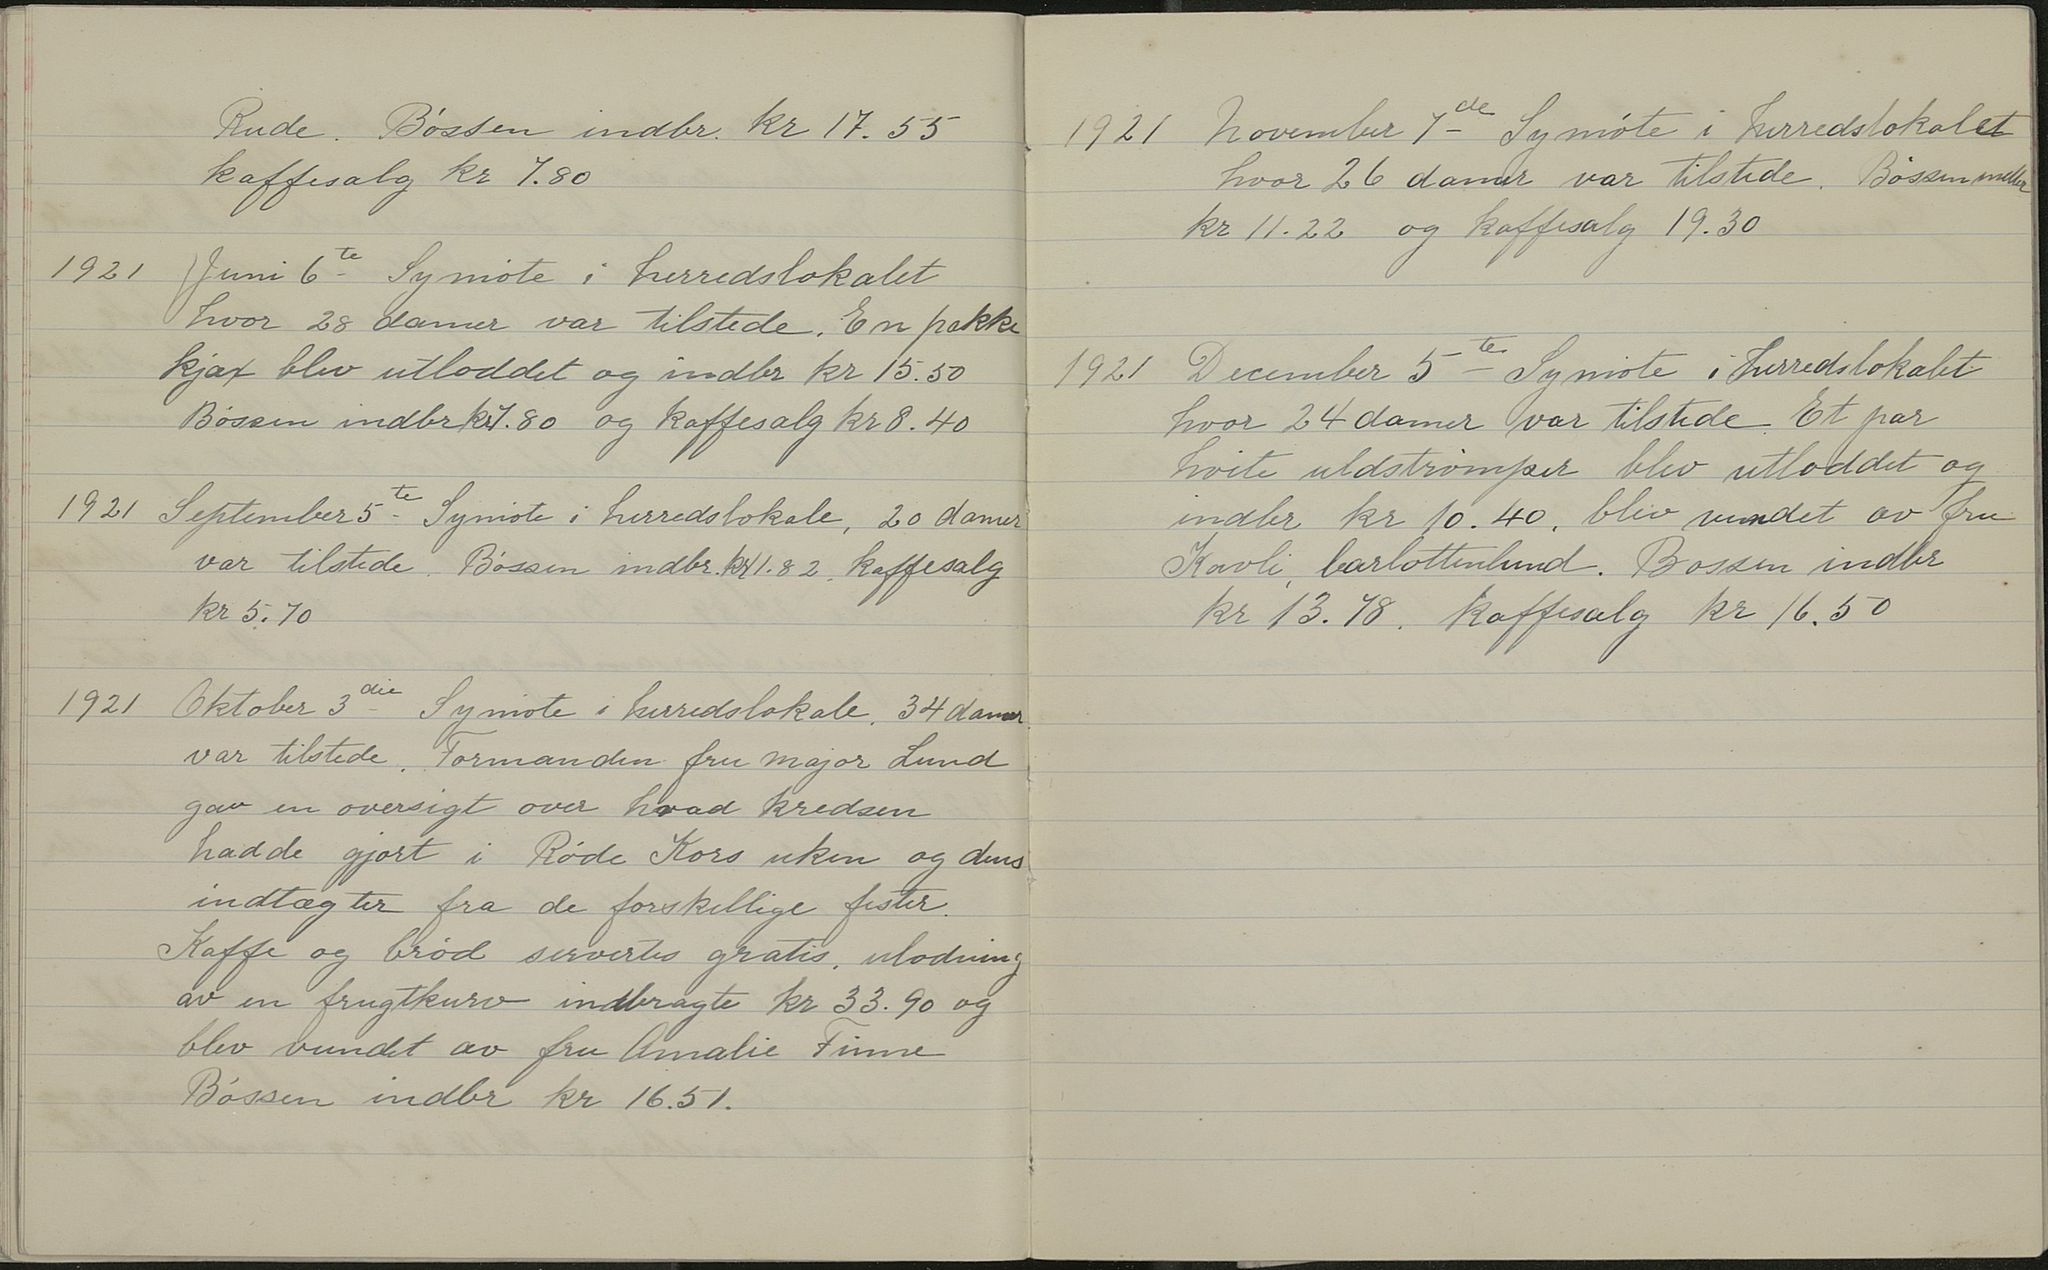 Rude. Bössen indbr. kr 17.55
kaffesalg kr 7.80
1921 Juni 6te Symöte i herredslokalet
hvor 28 damer var tilstede. En pakke
kjax blev utloddet og indbr kr 15.50
Bössen indbr kr 7.80 og kaffesalg kr 8.40
1921 September 5te Symöte i herredslokale, 20 damer
var tilstede. Bössen indbr. kr 11.82. kaffesalg
kr 5.70
1921 Oktober 3die Symöte i herredslokale. 34 damer
var tilstede. Formanden fru major Lund
gav en oversigt over hvad kredsen
hadde gjort i Röde Kors uken og dens
indtægter fra de forskellige fester.
Kaffe og bröd servertes gratis, utlodning
av en frugtkurv indbragte kr 33.90 og
blev vundet av fru Amalie Finne
Bössen indbr kr 16.51.
1921 November 7de Symöte i herredslokalet
hvor 26 damer var tilstede. Bössen
kr 11.22 og kaffesalg 19.30
1921 December 5te Symöte i herredslokalet
hvor 24 damer var tilstede. Et par
hvite uldströmper blev utloddet og
indbr kr 10.40. blev vundet av fru
Kavli, Carlottenlund. Bossen indbr
kr 13.78. kaffesalg kr 16.50